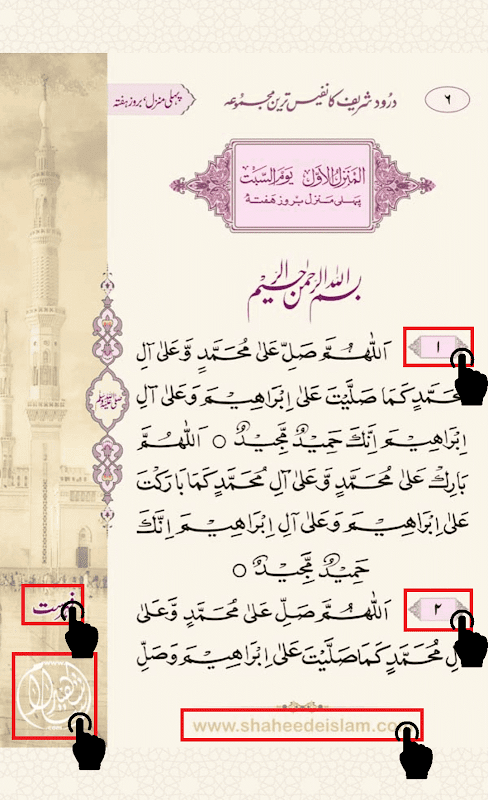 ۶
درود شریف کا نفیس ترین مجموعہ
پہلی منزل، بروز ہفتہ
اَلْمَنْزِلُ الْاَوَّلُ یَوْمُ السَّبْت
پہلی منزل بروز هفته
بسم الله الرحمن الرحیم
۱
اَللّٰهُمَّ صَلِّ عَلٰى مُحَمَّدٍ وَّعَلٰى اٰلِ
مُحَمَّدٍ كَمَا صَلَّيْتَ عَلٰى اِبْرَاهِيْمَ وَعَلٰى اٰلِ
اِبْرَاهِيْمَ اِنَّكَ حَمِيْدٌ مَّجِيْدٌ ○ اَللّٰهُمَّ
بَارِكْ عَلٰى مُحَمَّدٍ وَّعَلٰى اٰلِ مُحَمَّدٍ كَمَا بَارَكْتَ
عَلٰى اِبْرَاهِيْمَ وَعَلٰى اٰلِ اِبْرَاهِيْمَ اِنَّكَ
حَمِيْدٌ مَّجِيْدٌ ○
۲
اَللّٰهُمَّ صَلِّ عَلٰى مُحَمَّدٍ وَّعَلٰى
اٰلِ مُحَمَّدٍ كَمَا صَلَّيْتَ عَلٰى اِبْرَاهِيْمَ وَصَلِّ
فہرست
www.shaheedeislam.co